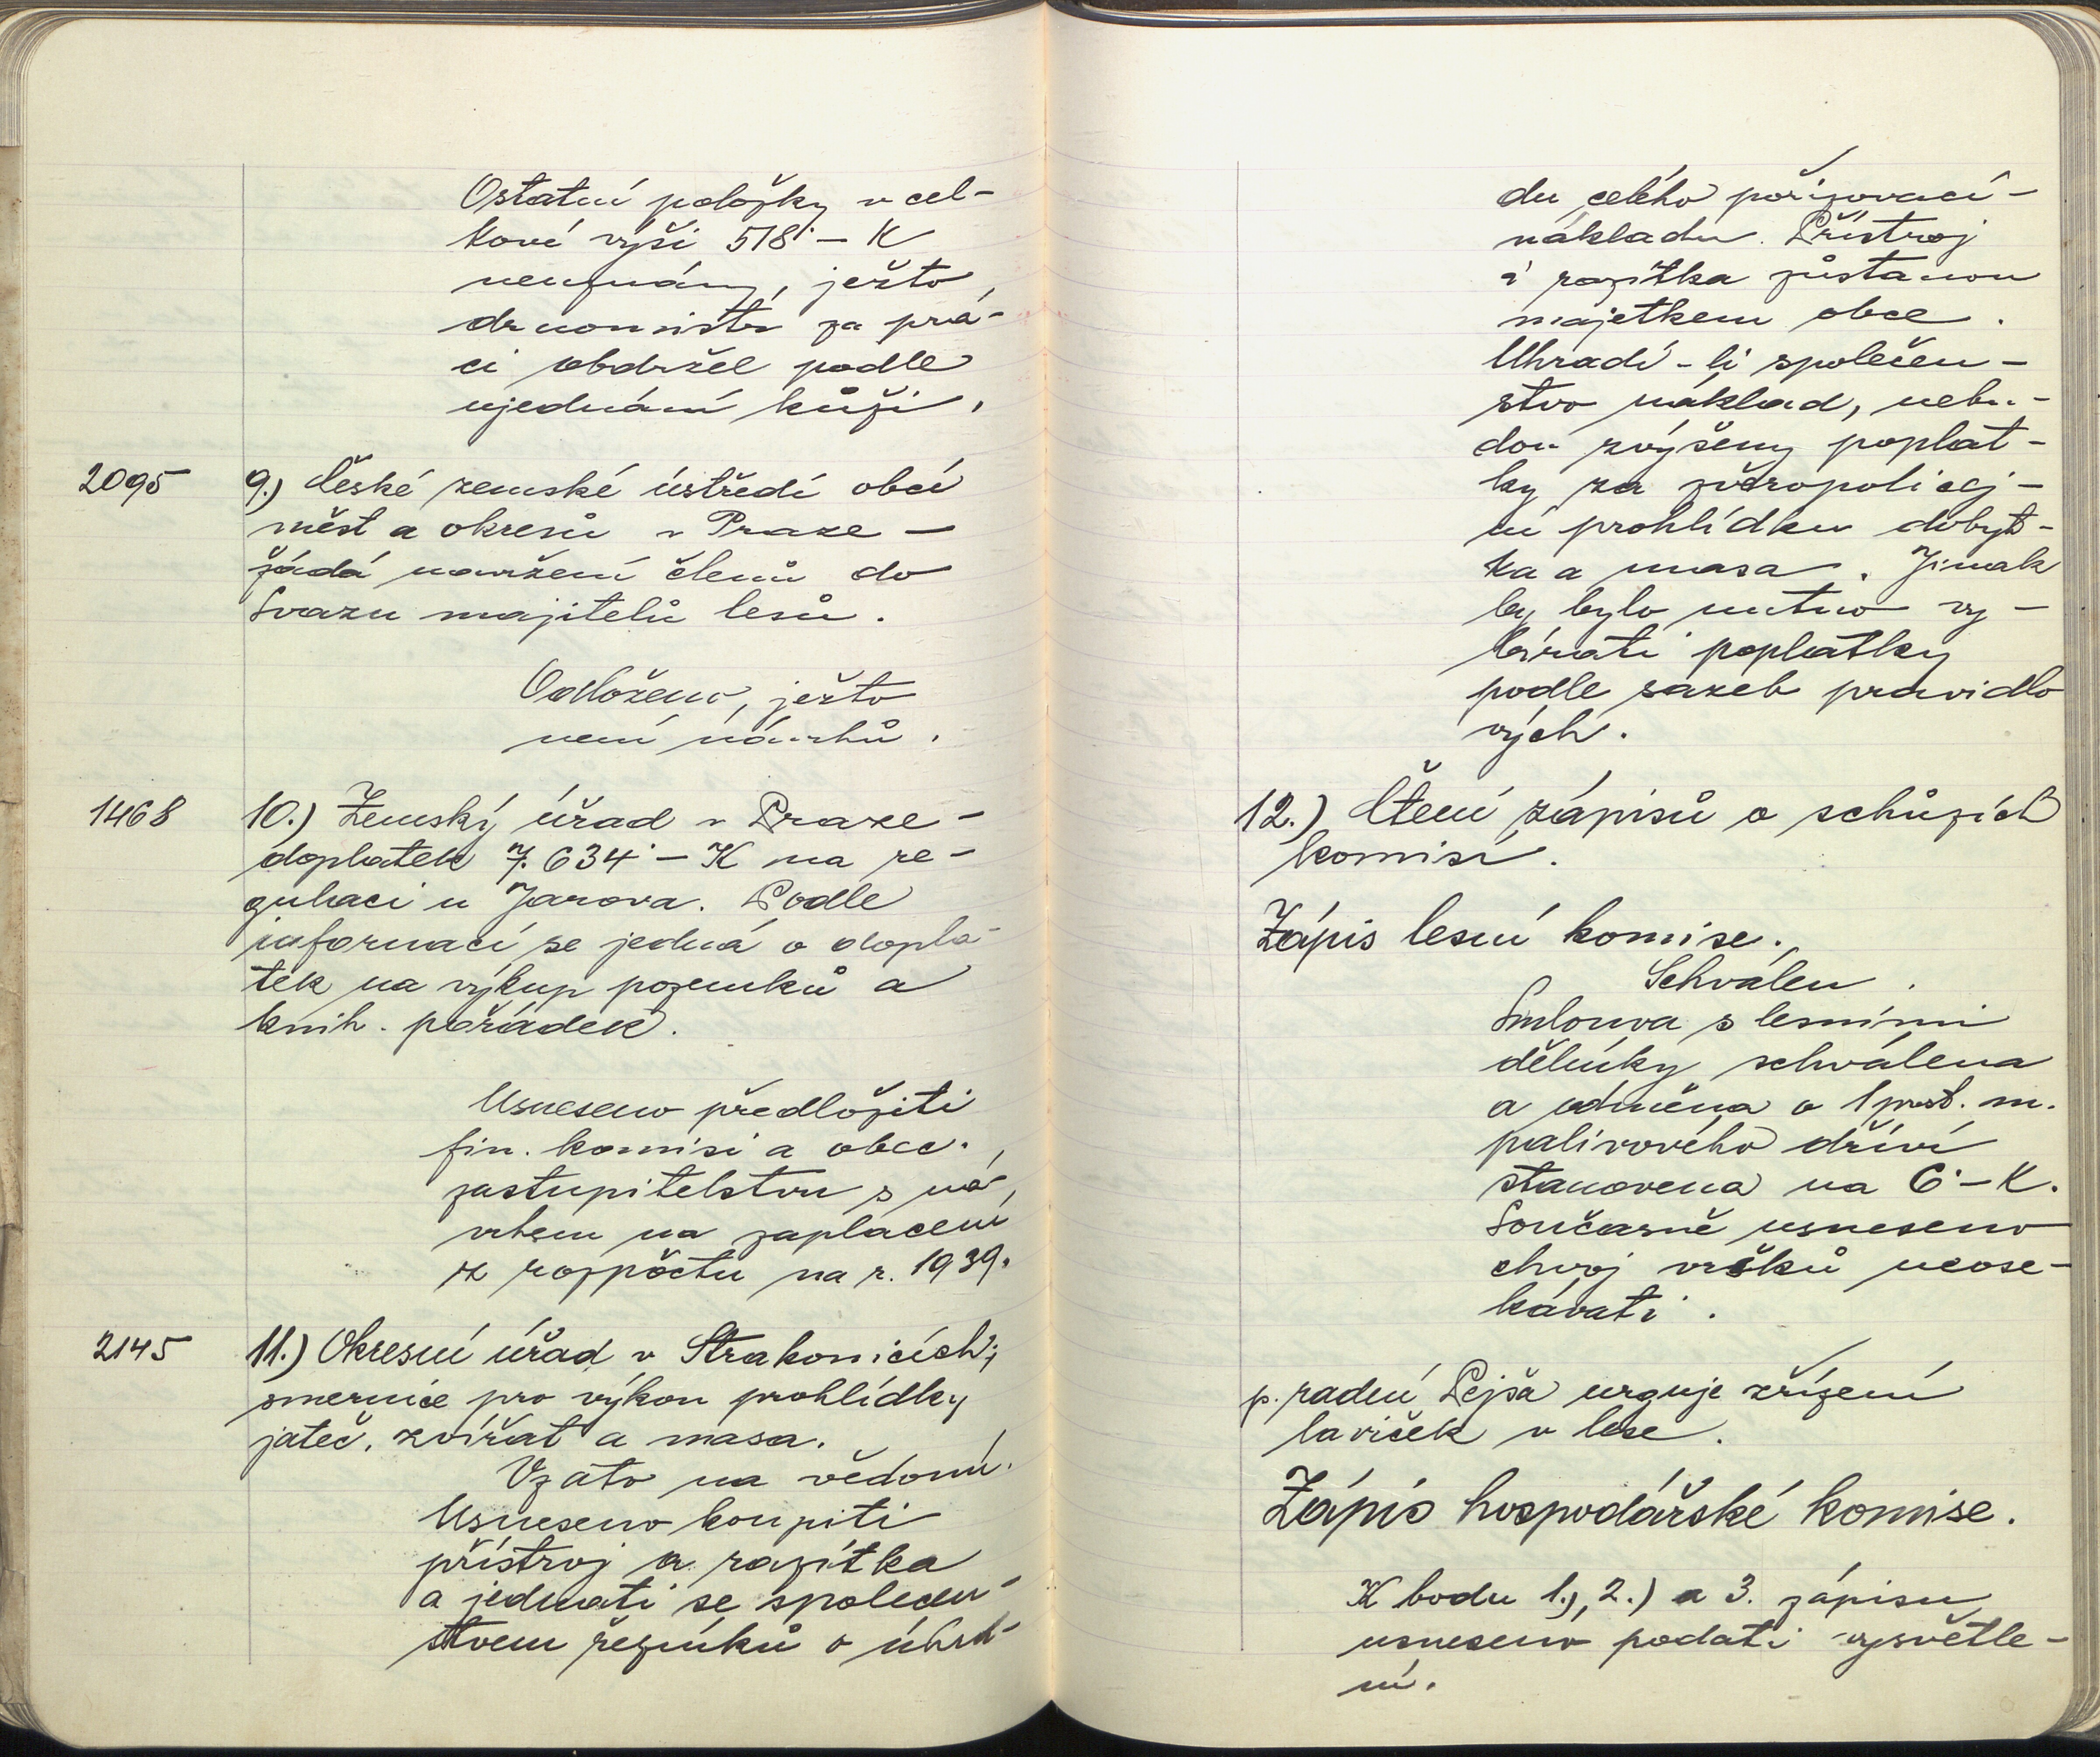 Ostatní položky v cel-
kové výši 518·– K
neuznány, ježto
drnomistr za prá-
ci obdržel podle
ujednání kůži.
2095 9.) České zemské ústředí obcí
měst a okresů v Praze –
žádá navržení členů do
Svazu majitelů lesů.
Odloženo, ježto
není návrhů.
1468 10.) Zemský úřad v Praze –
doplatek 7.634·– K na re-
gulaci u Jarova. Podle
informací se jedná o dopla-
tek na výkup pozemků a
knih. pořádek.
Usneseno předložiti
fin. komisi a obec.
zastupitelstvu s ná-
vrhem na zaplacení
z rozpočtu na r. 1939.
2145 11.) Okresní úřad v Strakonicích;
smernice pro výkon prohlídky
jateč. zvířat a masa.
Vzato na vědomí.
Usneseno koupiti
přístroj a razítka
a jednati se společen-
stvem řezníků o úhra-
du celého pořizovací-
nákladu. Přístroj
i razítka zůstanou
majetkem obce.
Uhradí-li společen-
stvo náklad, nebu-
dou zvýšeny poplat-
ky za zvěropolicej-
ní prohlídku dobyt-
ka a masa. Jinak
by bylo nutno vy-
bírati poplatky
podle sazeb pravidlo
vých.
12.) Čtení zápisů o schůzích
komisí.
Zápis lesní komise.
Schválen.
Smlouva s lesními
dělníky schválena
a odměna o 1 prost. m.
palivového dříví
stanovena na 6·– K.
Současně usneseno
chvoj vršků neose-
kávati.
p. radní Pejša urguje zřízení
laviček v lese.
Zápis hospodářské komise.
K bodu 1.), 2.) a 3. zápisu
usneseno podati vysvětle-
ní.